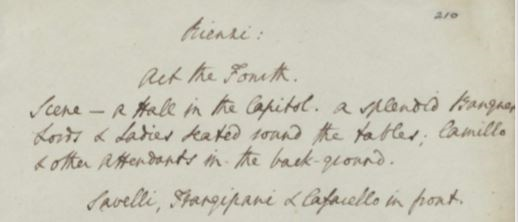 210
Rienzi:
Act the Fourth.
Scene — a Hall in the Capitol. a splendid Banquet
Lords & Ladies seated round the tables; Camillo
& other attendants in the back-ground.
Savelli, Frangipani & Cafarello in front.